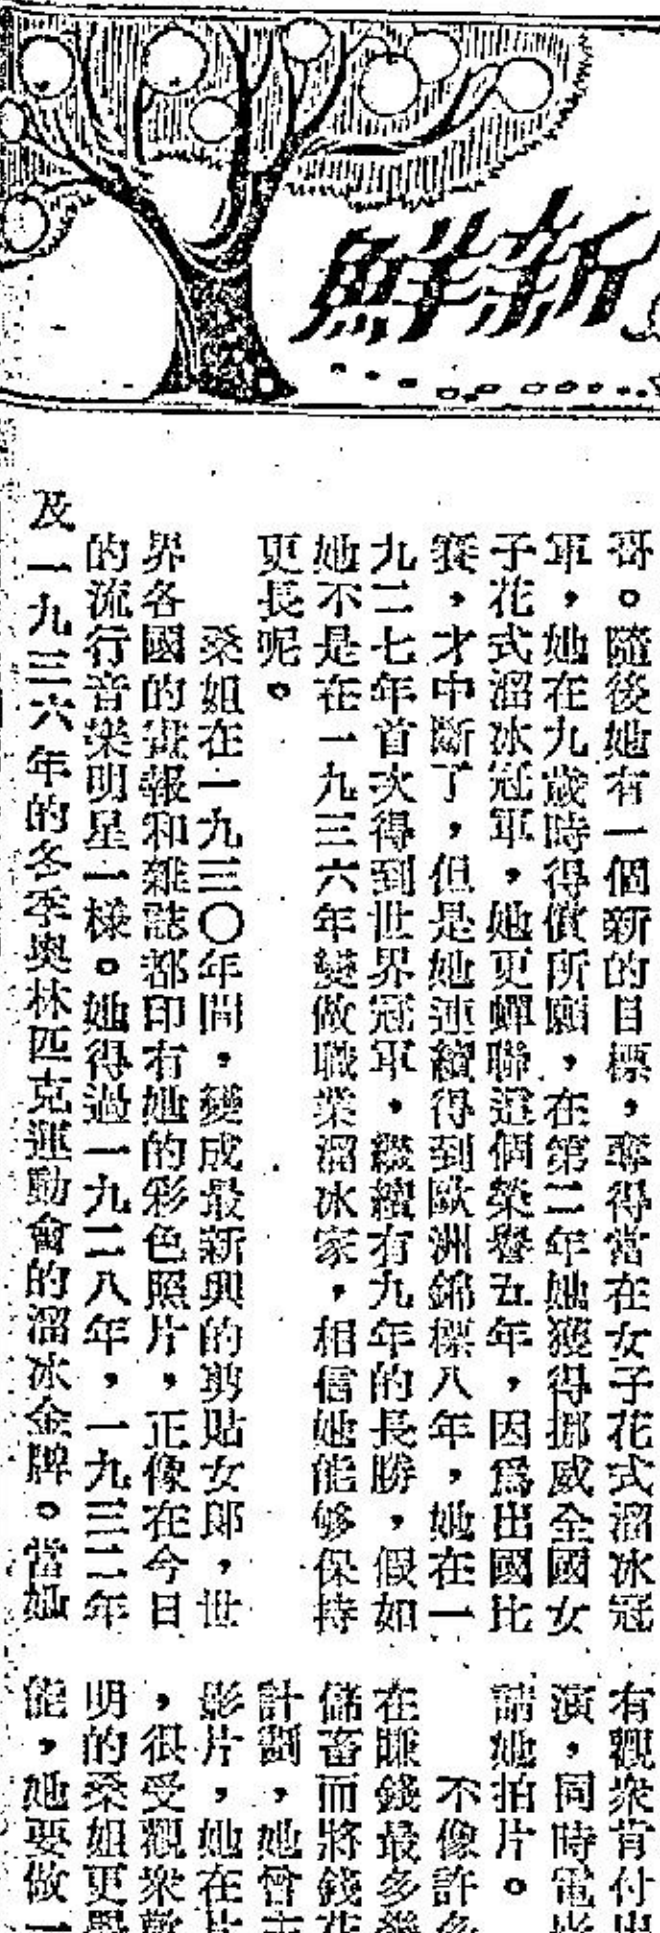 新鮮
哥。隨後她有一個新的目標，奪得當在女子花式溜冰冠
軍，她在九歲時得償所願，在第二年她獲得挪威全國女
子花式溜冰冠軍，她更蟬聯這個榮譽五年，因爲出國比
賽，才中斷了，但是她連續得到歐洲錦標八年，她在一
九二七年首次得到世界冠軍，繼續有九年的長勝，假如
她不是在一九三六年變做職業溜冰家，相信她能够保持
更長呢。
桑姐在一九三〇年間，變成最新興的剪貼女郎，世
界各國的畫報和雜誌都印有她的彩色照片，正像在今日
的流行音樂明星一樣。她得過一九二八年，一九三二年
及一九三六年的冬季奥林匹克運動會的溜冰金牌。當她
有觀衆肯付
演，同時電
請她拍片。
不像許多
在賺錢最多
儲畜而將錢
計劃，她曾
影片，她在
，很受觀衆
明的桑姐更
能，她要做一